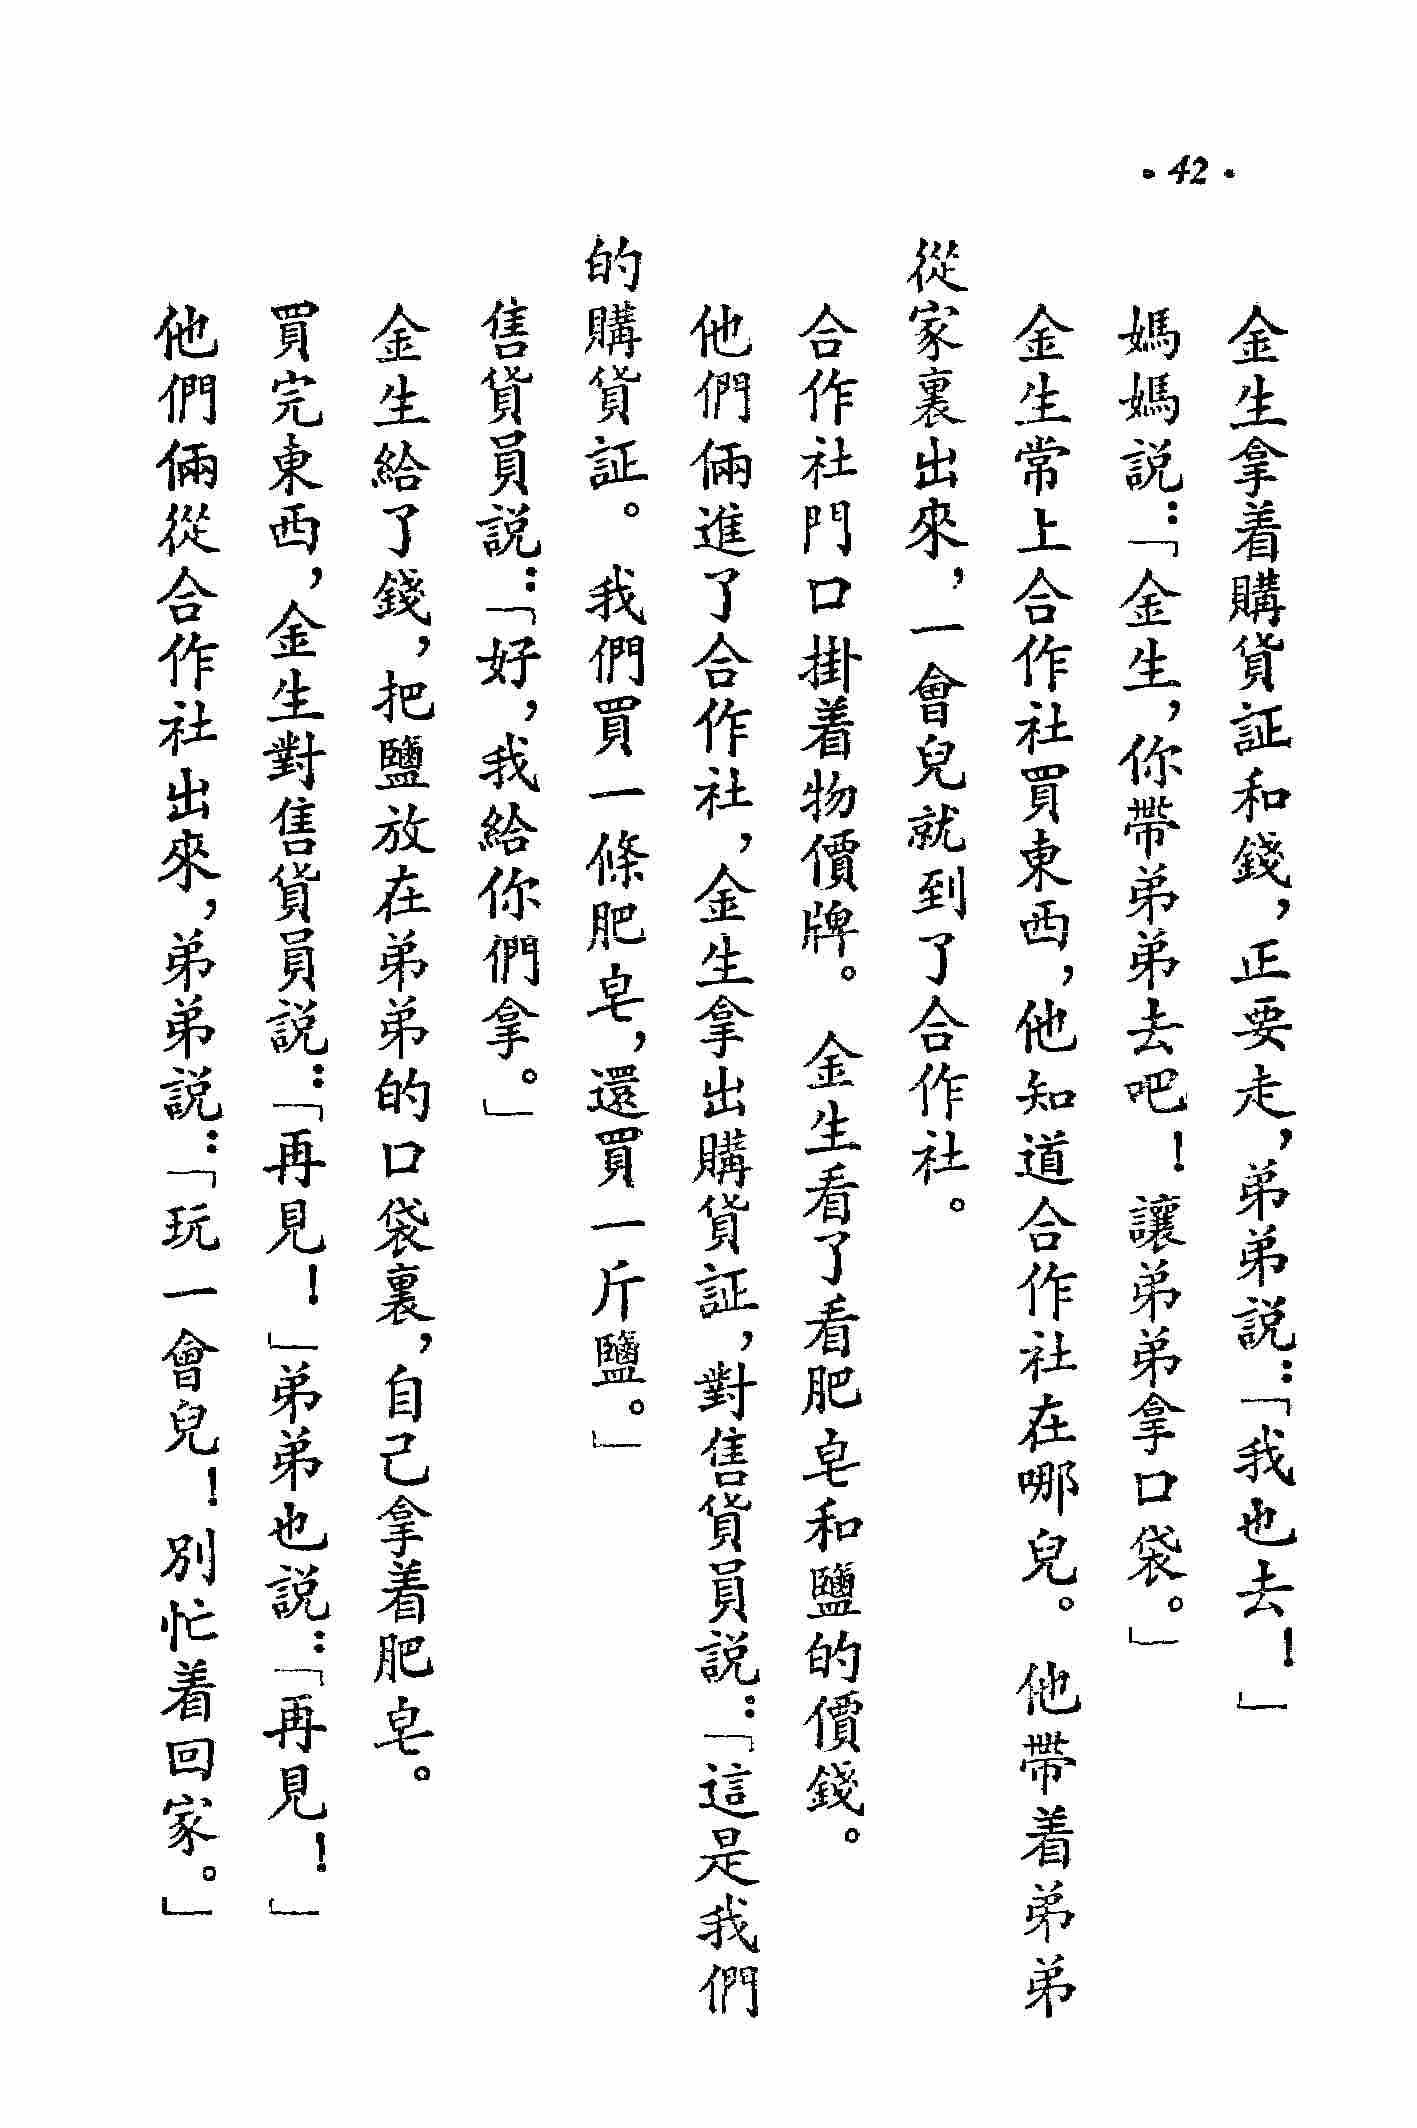 ·42·
金生拿着購貨証和錢，正要走，弟弟説：「我也去！」
媽媽説：「金生，你帶弟弟去吧！讓弟弟拿口袋。」
金生常上合作社買東西，他知道合作社在哪兒。他帶着弟弟
從家裏出來，一會兒就到了合作社。
合作社門口掛着物價牌。金生看了看肥皂和鹽的價錢。
他們倆進了合作社，金生拿出購貨証，對售貨員説：「這是我們
的購貨証。我們買一條肥皂，還買一斤鹽。」
售貨員説：「好，我給你們拿。」
金生給了錢，把鹽放在弟弟的口袋裏，自己拿着肥皂。
買完東西，金生對售貨員説：「再見！」弟弟也説：「再見！」
他們倆從合作社出來，弟弟説：「玩一會兒！別忙着回家。」